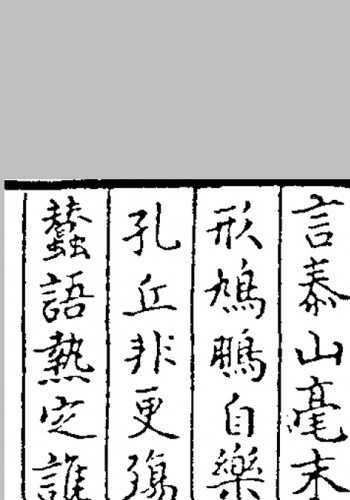 言泰山毫末
形鳩鵬自樂
孔丘非更殤
蠶語熱定誰